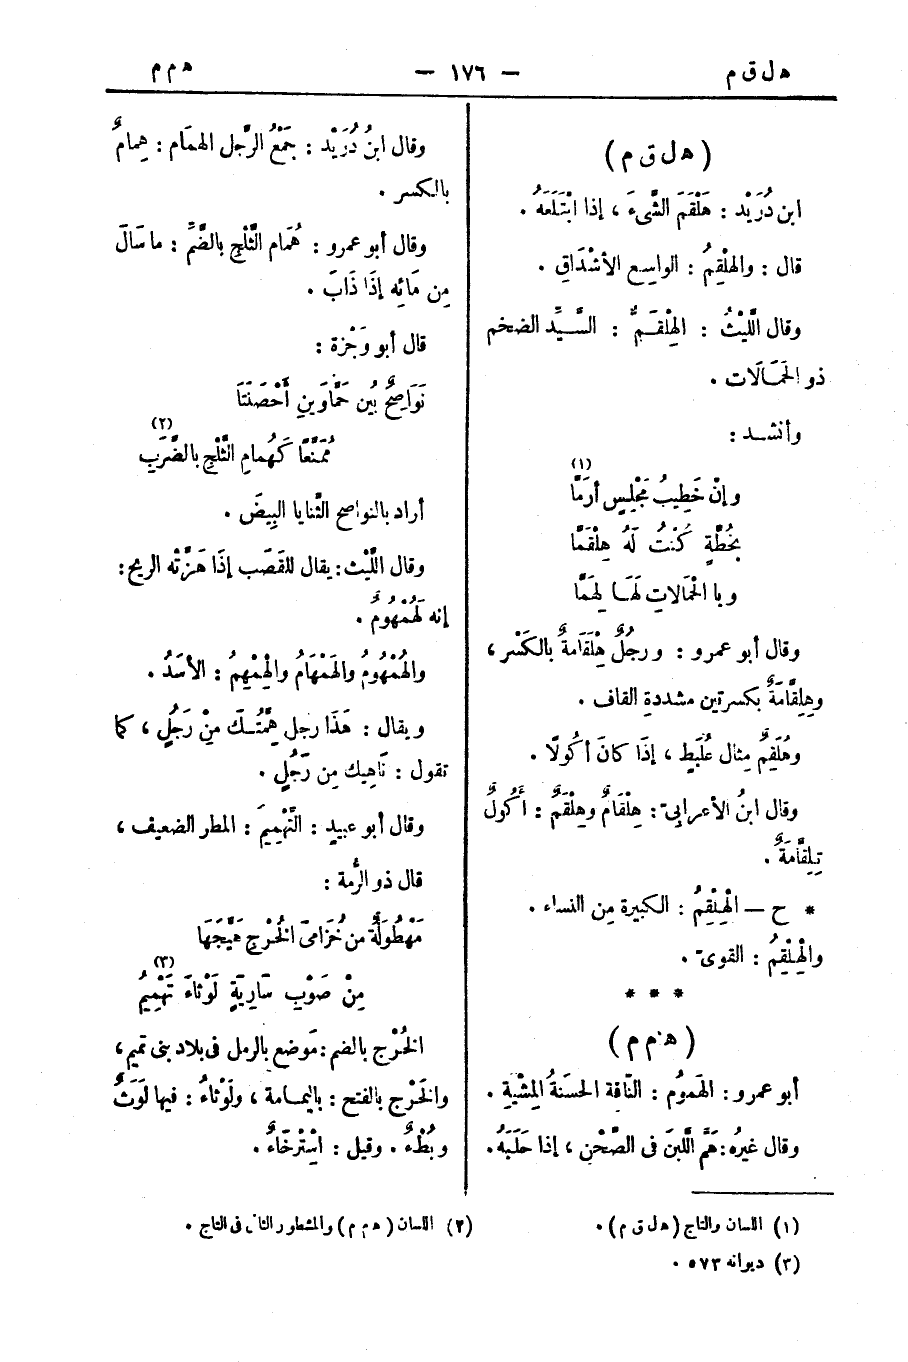 ه ل ق م — ١٧٦ — ه م م
( ه ل ق م )
ابن دُرَيْد : هَلْقَمَ الشَّىءَ ، إذا ابْتَلَعَهُ .
قال : والهِلْقِمُ : الواسِع الأشْدَاقِ .
وقال اللَّيْثُ : الهِلْقَمُّ : السَّيِّد الضخم
ذو الحَمَالَات .
وأنشد :
وإنْ خَطِيبُ مَجْلِسٍ أرَمَّا (١)
بخُطَّةٍ كُنْتُ لَهُ هِلْقَمَّا
وبالحَمَالاتِ لَهَا لِهَمَّا
وقال أبو عمرو : ورجُلٌ هِلْقَامَةٌ بالكَسْر ،
وهِلِقَّامَةٌ بكسرتين مشددةِ القاف .
وهُلَقِمٌ مثال عُلَبَطٍ ، إذَا كانَ أكُولًا .
وقال ابنُ الأعرابىّ : هِلْقَامٌ وهِلْقَمٌ : أَكُولٌ
تِلِقَّامَةٌ .
* ح — الْهِلْقِمُ : الكبيرة مِن النساء .
والْهِلْقِمُ : القوىّ .
* * *
( ه م م )
أبو عمرو : الهَمُوم : النَّاقة الحسَنَةُ المِشْيَةِ .
وقال غيرُه : هَمَّ اللَّبنَ فى الصَّحْنِ ، إذا حَلَبَهُ .
وقال ابنُ دُرَيْد : جَمْعُ الرَّجل الهمَام : هِمامٌ
بالكسر .
وقال أبو عمرو : هُمَام الثَّلْجِ بالضَّمِّ : ما سَالَ
مِن مَائِه إذَا ذَابَ .
قال أبو وَجْزة :
نَوَاصِحٌ بين حَمَّاوَينِ أَحْصَنَتَا
مُمَنَّعًا كَهُمامِ الثَّلْجِ بالضَّرَبِ (٢)
أراد بالنواصح الثَّنايا البِيضَ .
وقال اللَّيْث : يقال للقَصَب إذَا هَزَّتْه الريح :
إنه لَهُمْهُومٌ .
والهُمْهُومُ والهَمْهَامُ والْهِمْهِمُ : الأسَدُ .
ويقال : هَذَا رجل هِمَّتُكَ مِنْ رَجُلٍ ، كما
تقول : نَاهِيك مِن رَجُلٍ .
وقال أبو عبيدٍ : التَّهْمِيمُ : المطر الضعيف ،
قال ذو الرُّمة :
مَهْطُولَةٌ من خُزَامى الخُرْجِ هَيَّجَهَا
مِنْ صَوْبِ سَارِيَةٍ لَوْثَاءَ تَهْمِيمُ (٣)
الخُرْج بالضم : مَوضع بالرمل فى بلاد بنى تميم ،
والخَرْج بالفتح : باليمامة ، ولَوْثاءُ : فيها لَوَثٌ
وبُطْءٌ . وقيل : اسْتِرْخَاءٌ .
(١) اللسان والتاج ( ه ل ق م ) .
(٢) اللسان ( ه م م ) والمشطور الثانى فى التاج .
(٣) ديوانه ٥٧٣ .